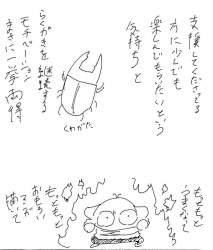 支援してくださってる
方に少しでも
楽しんでもらいたいという
気持ちと
らくがきを継続する
モチベーション
まさに一挙両得
くわがた
もっともっと
うまくなって
もっともっと
おもしろい
マンガ
描いて